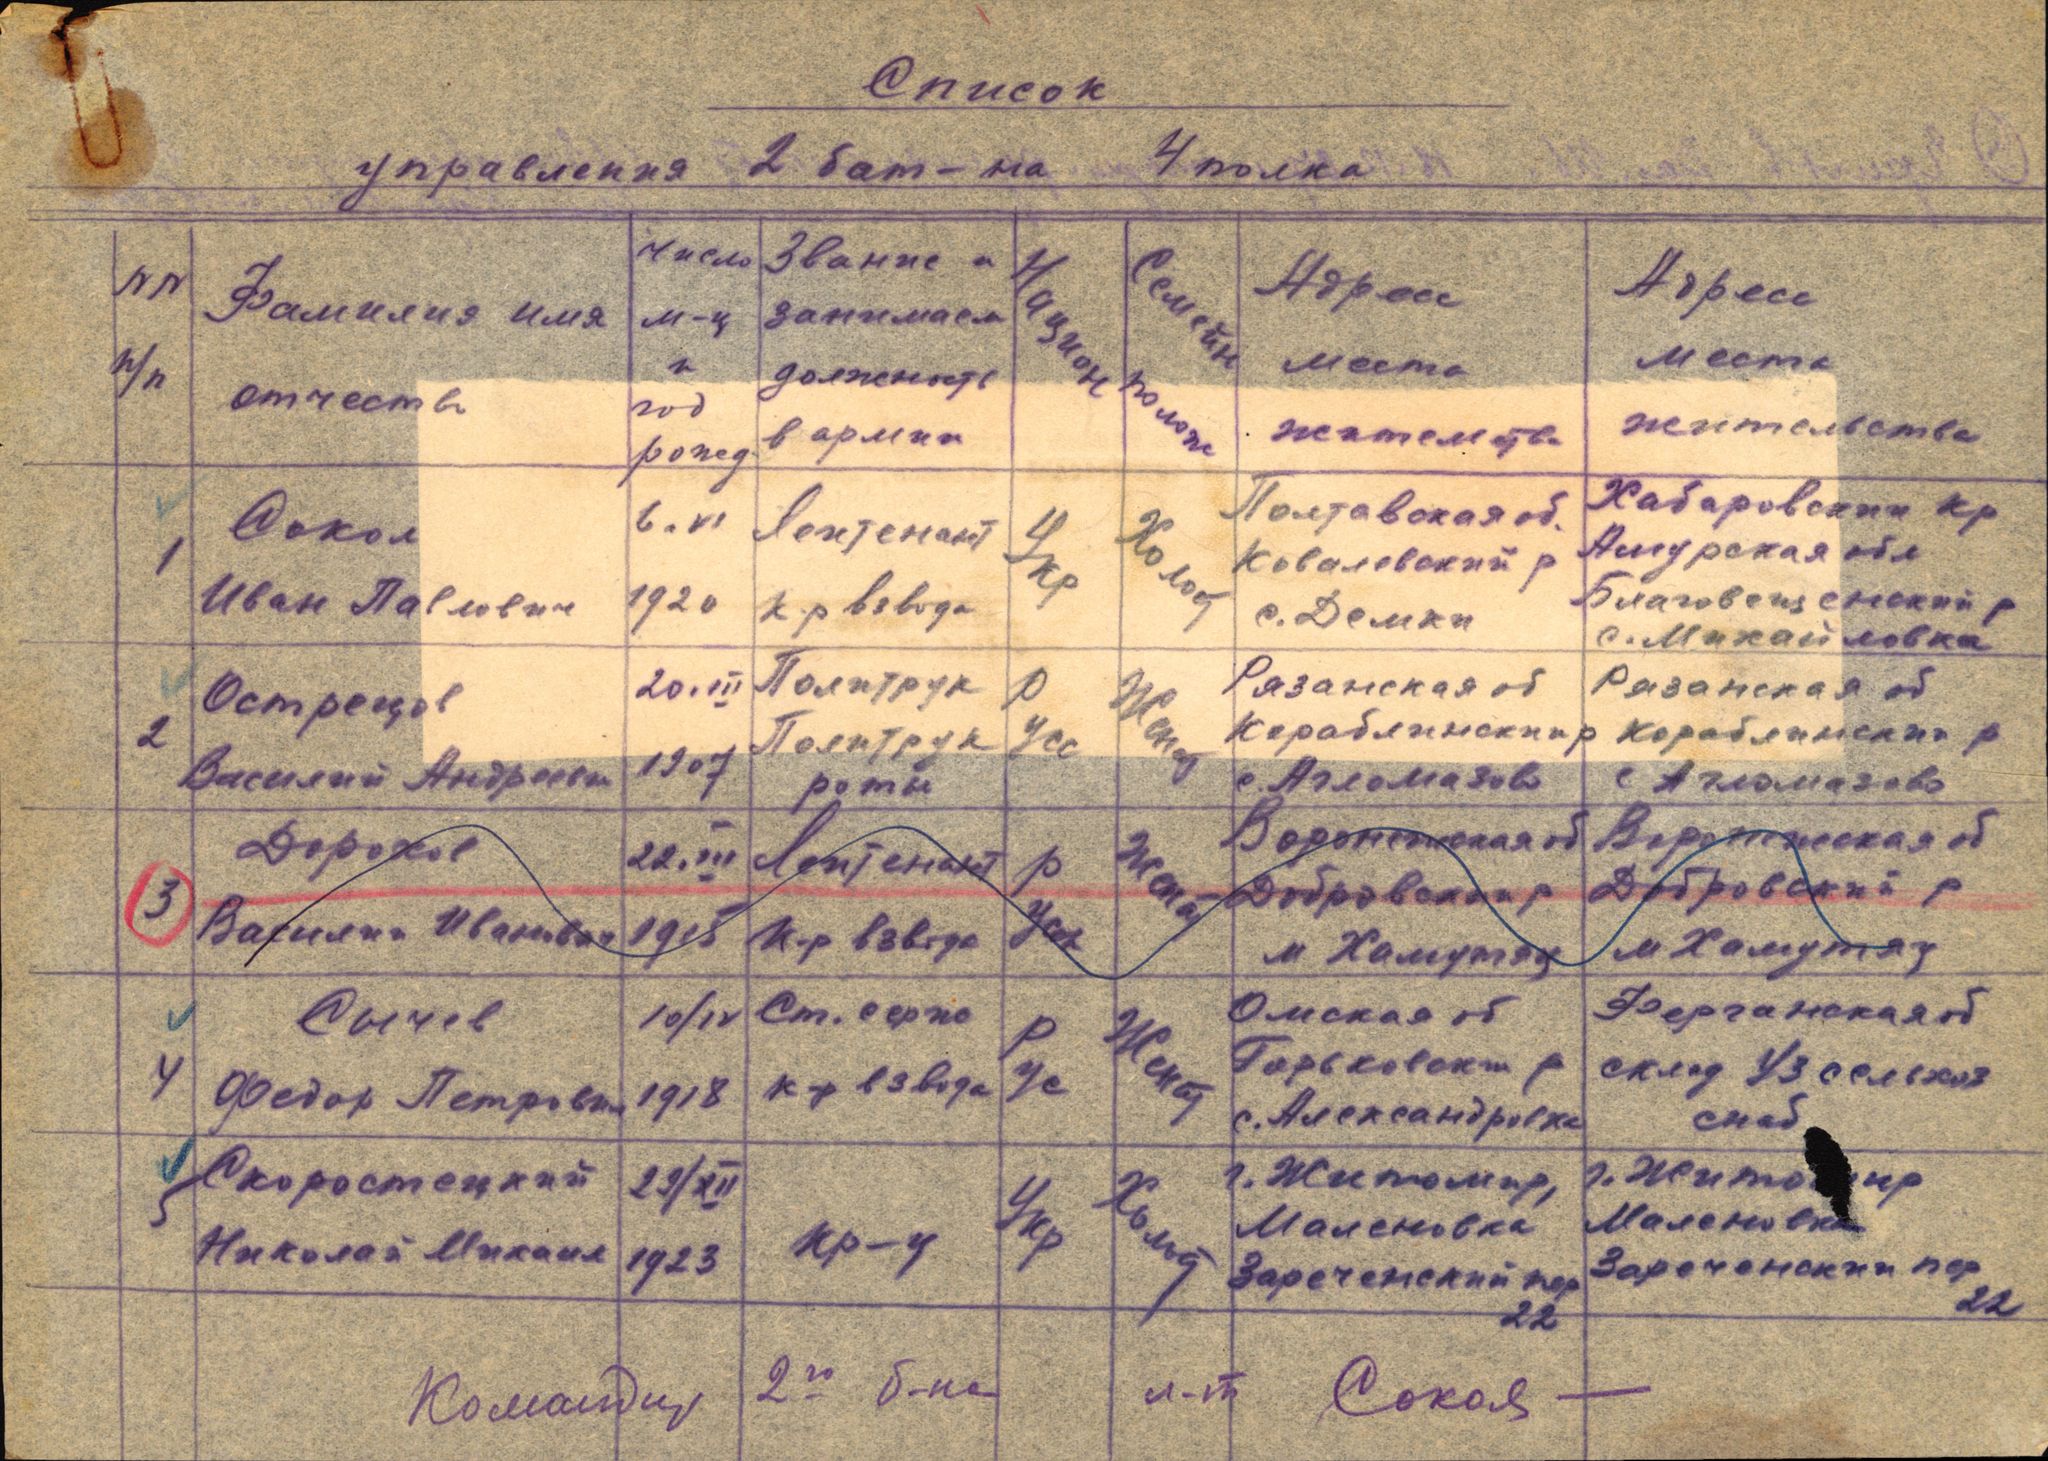 Список
управления 2 бат-на 4 полка
NN п/п
Фамилия имя отчество
число м-ц и год рожд
Звание и занимаем должность в армии
Национ
Семейн полож
Адрес места жительства
Адрес места жительства
1
Сокол Иван Павлович
6.VI 1920
Лейтенант к-р взвода
Укр
Холост
Полтавская об. Ковалевский р с. Демки
Хабаровский кр Амурская обл Благовещенский р с. Михайловка
2
Острецов Василий Андреевич
20.III 1907
Политрук Политрук роты
Русс
Женат
Рязанская об Кораблинский р с. Агломазово
Рязанская об Кораблинский р с Агломазово
3
Дорохов Василий Иванович
22.III 1915
Лейтенант к-р взвода
Русск
Женат
Воронежская об Добровский р м Хамутяц
Воронежская об Добровский р м Хамутяц
4
Сычев Федор Петрович
10/IV 1918
Ст. серж к-р взвода
Рус
Женат
Омская об Горьковский р с. Александровка
Ферганская об склад Узсельхоз снаб
5
Скоростецкий Николай Михаил
29/XII 1923
кр-ц
Укр
Холост
г. Житомир, Маленовка Зареченский пер 22
г. Житомир Маленовка Зареченский пер 22
Командир 2го б-на л-т Сокол